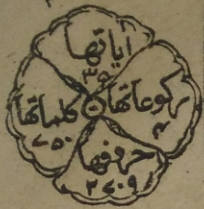 اياتها
٣٥
ركوعاتها
٤
كلماتها
٧٥٠
حروفها
٢٧٠٩